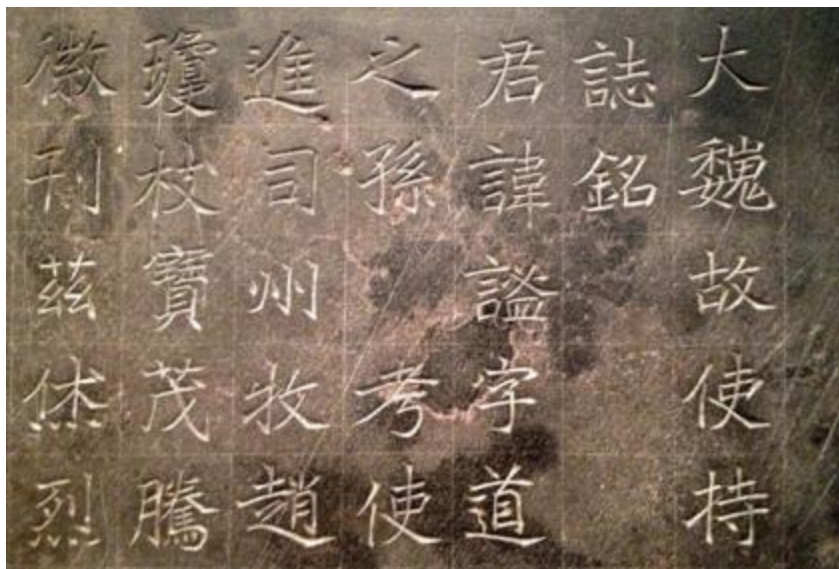 大魏故使持
誌銘
君諱謐字道
之孫 考使
進司州牧趙
瓊枝寶茂騰
徽刊茲烋烈